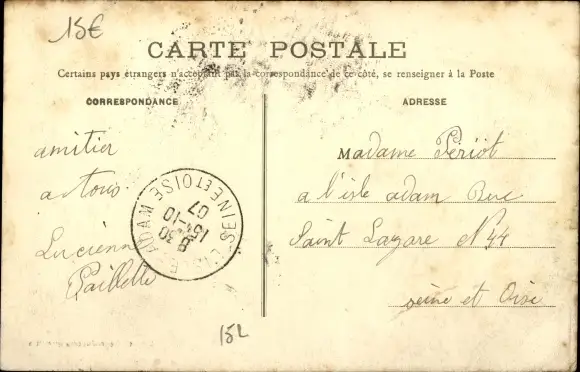 15€
CARTE POSTALE
Certains pays étrangers n'acceptant pas la correspondance de ce côté, se renseigner à la Poste
CORRESPONDANCE
ADRESSE
amitier
a tous
Lucienne
Paillette
Madame Périot
a l'isle adam Rue
Saint Lazare N 44
seine et Oise
SEINE ET OISE
ADAM
15-10
07
152